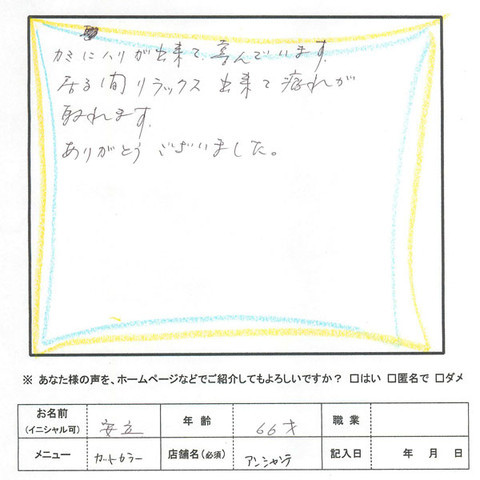 カミにハリが出来て、喜んでいます。
居る間リラックス出来て疲れが
取れます。
ありがとうございました。
※ あなた様の声を、ホームページなどでご紹介してもよろしいですか? □はい □匿名で □ダメ
お名前 (イニシャル可) 安立 年齢 66才 職業
メニュー カットカラー 店舗名(必須) アンシャンテ 記入日 年 月 日